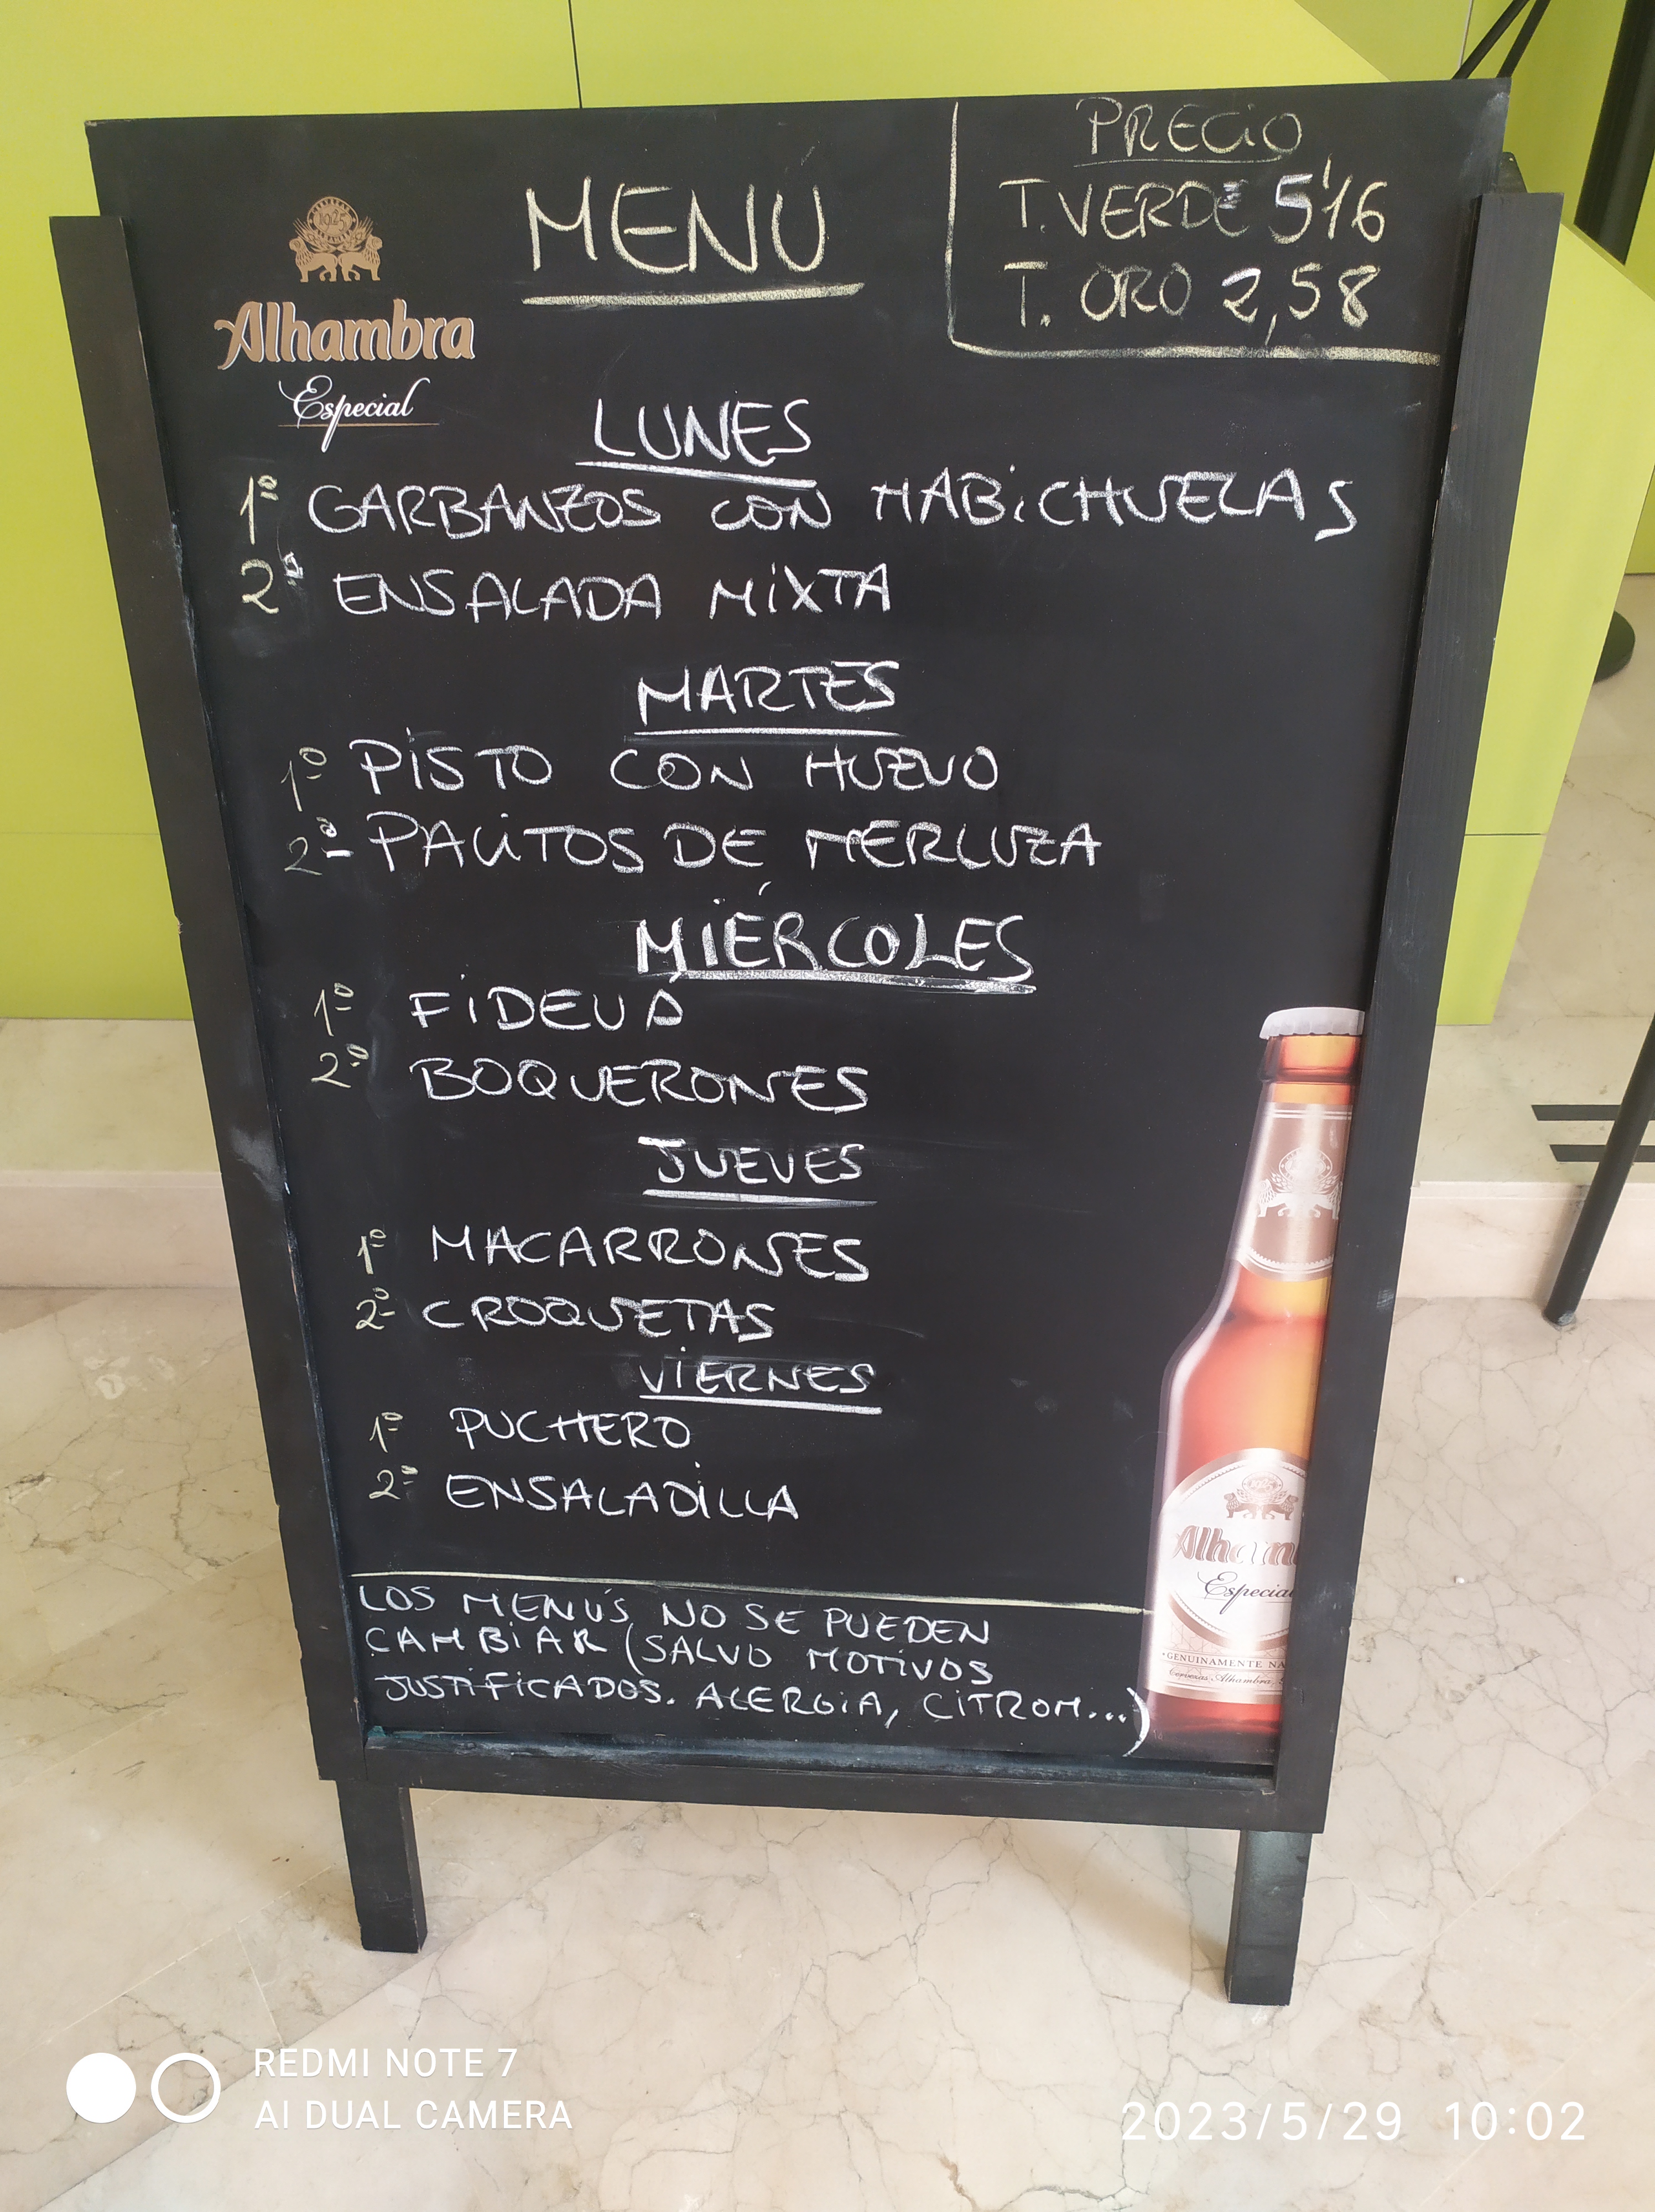 MENÚ
PRECIO
T. VERDE 5'16
T. ORO 2,58
1925
Alhambra
Especial
LUNES
1º GARBANZOS CON HABICHUELAS
2º ENSALADA MIXTA
MARTES
1º PISTO CON HUEVO
2º PALITOS DE MERLUZA
MIÉRCOLES
1º FIDEUÁ
2º BOQUERONES
JUEVES
1º MACARRONES
2º CROQUETAS
VIERNES
1º PUCHERO
2º ENSALADILLA
LOS MENÚS NO SE PUEDEN
CAMBIAR (SALVO MOTIVOS
JUSTIFICADOS. ALERGIA, CITROM...)
Alham
Especial
GENUINAMENTE NA
Cervezas Alhambra
REDMI NOTE 7
AI DUAL CAMERA
2023/5/29 10:02